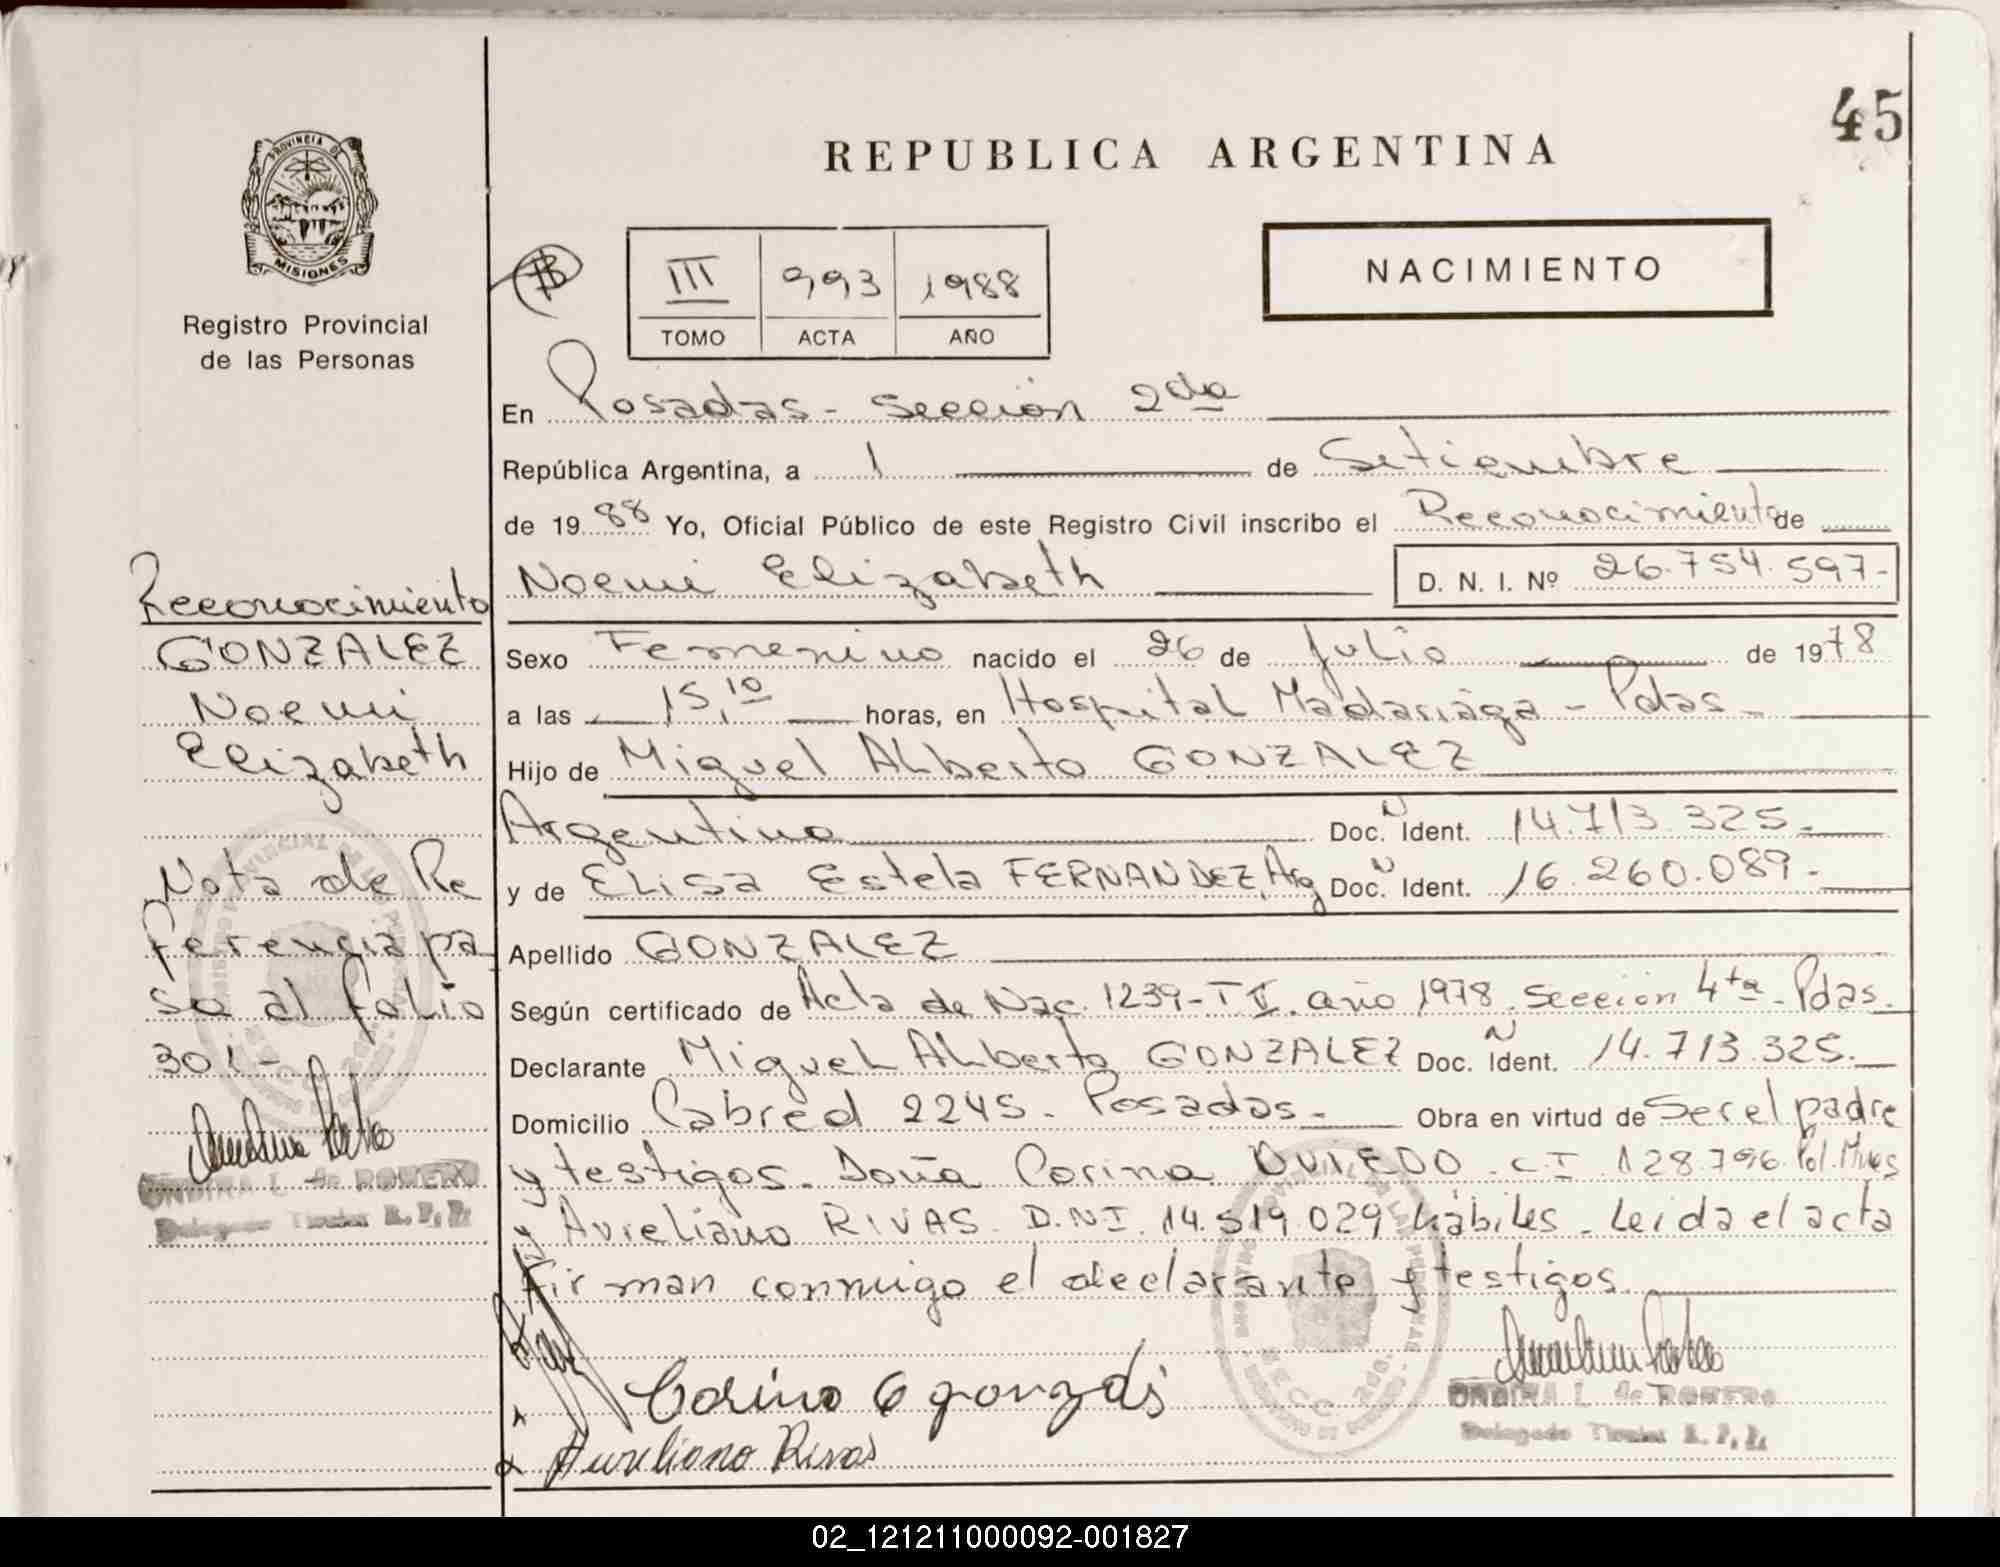 45
REPUBLICA ARGENTINA
PROVINCIA DE
MISIONES
Registro Provincial
de las Personas
III 993 1988
TOMO ACTA AÑO
NACIMIENTO
En Posadas - Sección 2da
República Argentina, a 1 de Setiembre
de 1988 Yo, Oficial Público de este Registro Civil inscribo el Reconocimiento de
Noemi Elizabeth D. N. I. Nº 26.754.597-
Sexo Femenino nacido el 26 de Julio de 1978
a las 15,10 horas, en Hospital Madariaga - Pdas -
Hijo de Miguel Alberto GONZALEZ
Argentino Doc. N Ident. 14.713.325.
y de Elisa Estela FERNANDEZ, Arg Doc. N Ident. 16.260.089.
Apellido GONZALEZ
Según certificado de Acta de Nac. 1239-T I. año 1978. Sección 4ta - Pdas.
Declarante Miguel Alberto GONZALEZ Doc. N Ident. 14.713.325.
Domicilio Cabred 2245. Posadas. Obra en virtud de Ser el padre
y testigos. Doña Corina OVIEDO. C.I 128.796. Pol. Mnes
y Aureliano RIVAS. D.N.I. 14.519.029 hábiles. Leida el acta
firman conmigo el declarante y testigos.
Aureliano Rivas
ONDINA L. de ROMERO
Delegado Titular R. P. P.
Reconocimiento
GONZALEZ
Noemi
Elizabeth
Nota de Re
ferencia pa
sa al folio
301-
ONDINA L. de ROMERO
Delegado Titular R. P. P.
02_121211000092-001827